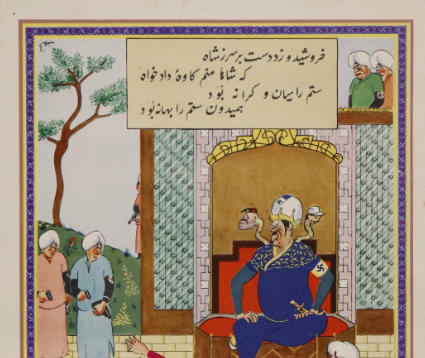 خروشید و زد دست بر سر ز شاه
که شاها منم کاوهٔ دادخواه
ستم را میان و کرانه بود
همیدون ستم را بهانه بود